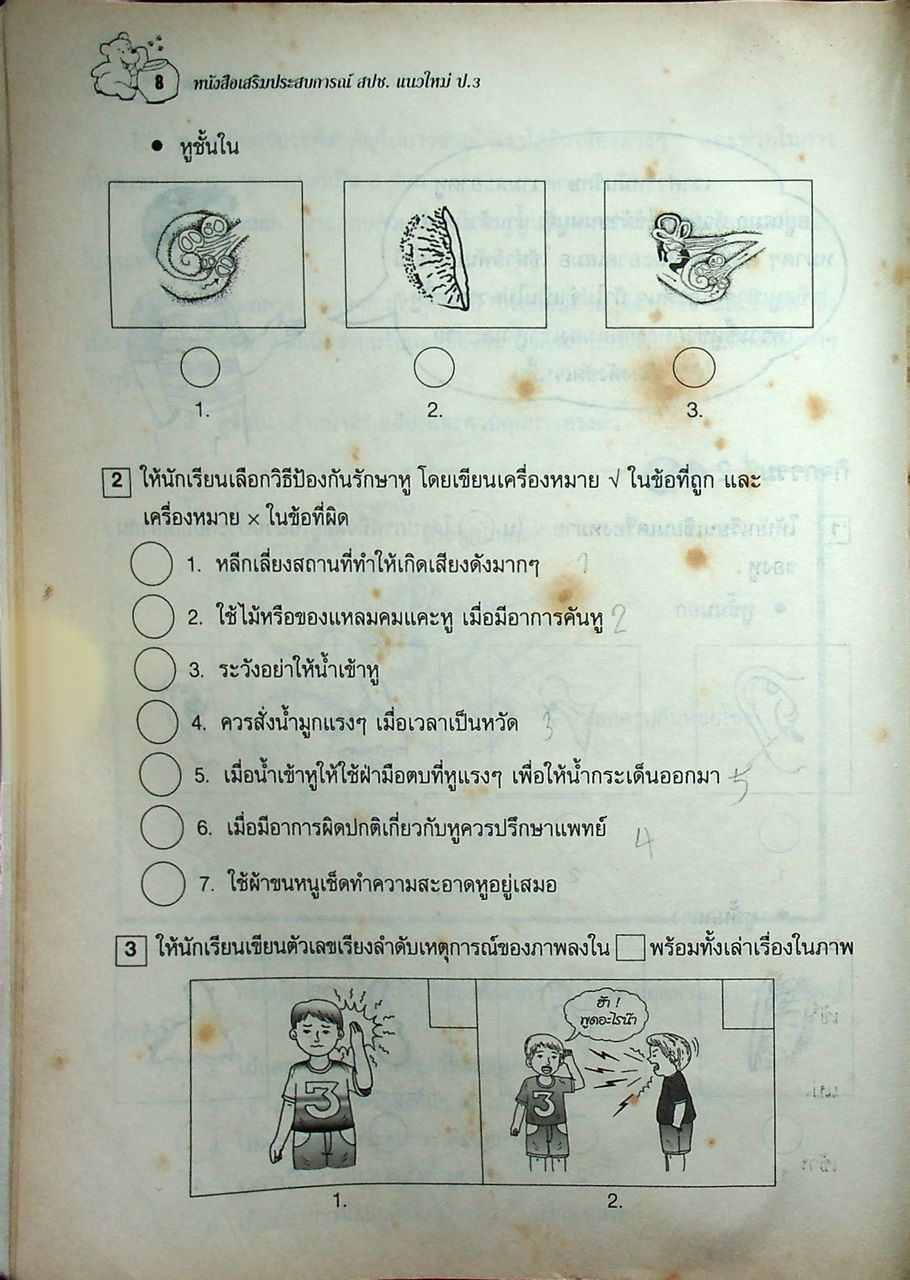 8 หนังสือเสริมประสบการณ์ สปช. แนวใหม่ ป.3
• หูชั้นใน
1. 2. 3.
2 ให้นักเรียนเลือกวิธีป้องกันรักษาหู โดยเขียนเครื่องหมาย √ ในข้อที่ถูก และ
เครื่องหมาย × ในข้อที่ผิด
1. หลีกเลี่ยงสถานที่ทำให้เกิดเสียงดังมากๆ 1
2. ใช้ไม้หรือของแหลมคมแคะหู เมื่อมีอาการคันหู 2
3. ระวังอย่าให้น้ำเข้าหู
4. ควรสั่งน้ำมูกแรงๆ เมื่อเวลาเป็นหวัด 3
5. เมื่อน้ำเข้าหูให้ใช้ฝ่ามือตบที่หูแรงๆ เพื่อให้น้ำกระเด็นออกมา 5
6. เมื่อมีอาการผิดปกติเกี่ยวกับหูควรปรึกษาแพทย์ 4
7. ใช้ผ้าขนหนูเช็ดทำความสะอาดหูอยู่เสมอ
3 ให้นักเรียนเขียนตัวเลขเรียงลำดับเหตุการณ์ของภาพลงใน พร้อมทั้งเล่าเรื่องในภาพ
ฮ้า !
พูดอะไรน๊า
3 3
1. 2.